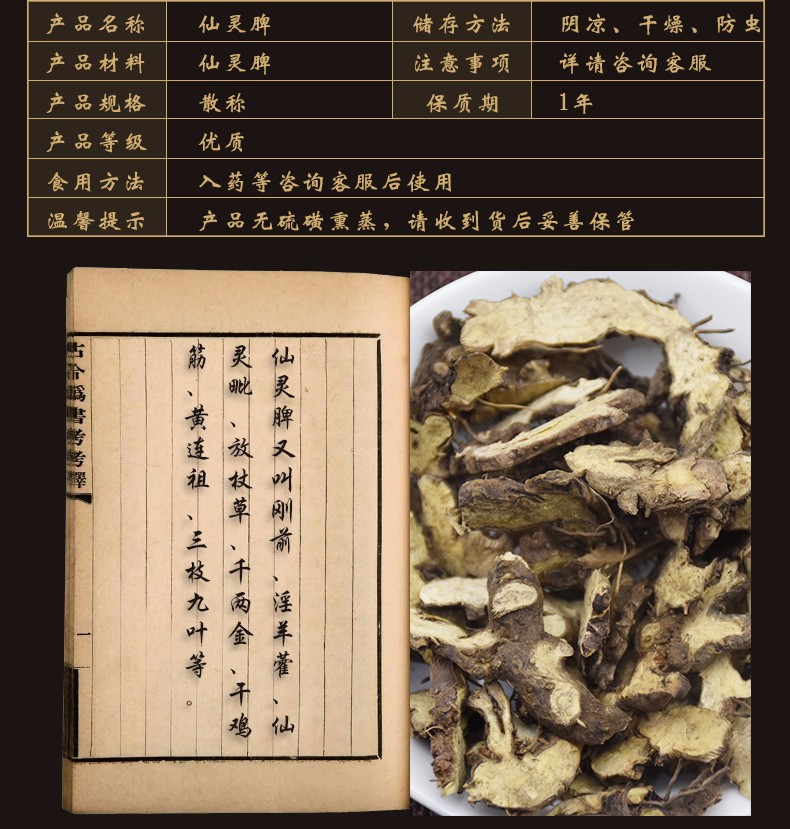 产品名称 仙灵脾 储存方法 阴凉、干燥、防虫
产品材料 仙灵脾 注意事项 详请咨询客服
产品规格 散称 保质期 1年
产品等级 优质
食用方法 入药等咨询客服后使用
温馨提示 产品无硫磺熏蒸，请收到货后妥善保管
仙灵脾又叫刚前、淫羊藿、仙
灵毗、放杖草、千两金、干鸡
筋、黄连祖、三枝九叶等。
古今伪书考考释
一